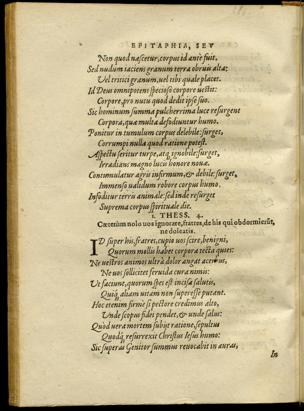 EPITAPHIA, SEV
Non quod nascetur, corpus id ante fuit.
Sed nudum iaciens granum terra obruit alta:
Vel tritici granum, vel tibi quale placet.
Id Deus omnipotens specioso corpore uestit:
Corpore, pro nutu quod dedit ipse suo.
Sic hominum summa pulcherrima luce resurgent
Corpora, quæ multa defodiuntur humo.
Ponitur in tumulum corpus delebile: surget,
Corrumpi nulla quod ratione potest.
Aspectu seritur turpe, atq; ignobile: surget,
Irradians magno lucis honore noua.
Contumulatur agro infirmum, & debile: surget,
Immenso ualidum robore corpus humo.
Infoditur terræ animale: sed inde resurget
Suprema corpus spirituale die.
1. THESS. 4.
Cæterùm nolo uos ignorare, fratres, de his qui obdormierūt,
ne doleatis.
ID super his, fratres, cupio uos scire, benigni,
Quorum molli habet corpora tecta quies:
Ne uestros animos ultrà dolor angat acerbus,
Ne uos sollicitet feruida cura nimis:
Ut faciunt, quorum spes est incisa salutis,
Quiq; aliam uitam non superesse putant.
Hoc etenim firmè si pectore credimus alto,
Unde scopus fidei pendet, & unde salus:
Quòd uera mortem subijt ratione, sepultus
Quodq; resurrexit Christus Iesus humo:
Sic superas Genitor summus reuocabit in auras,
In